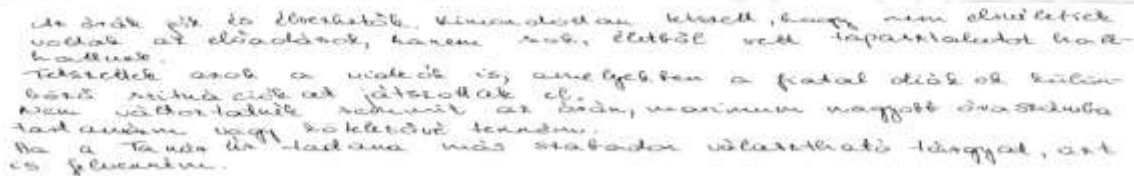 Az órák jók és élvezhetők. Kimondottan tetszett, hogy nem elméletiek
voltak az előadások, hanem sok, életből vett tapasztalatot hall-
hattunk.
Tetszettek azok a videók is, amelyekben a fiatal diákok külön-
böző szituációkat játszottak el.
Nem változtatnék semmit az órán, maximum nagyobb óraszámba
tartanám vagy kötelezővé tenném.
Ha a Tanár Úr tartana más szabadon választható tárgyat, azt
is felvenném.